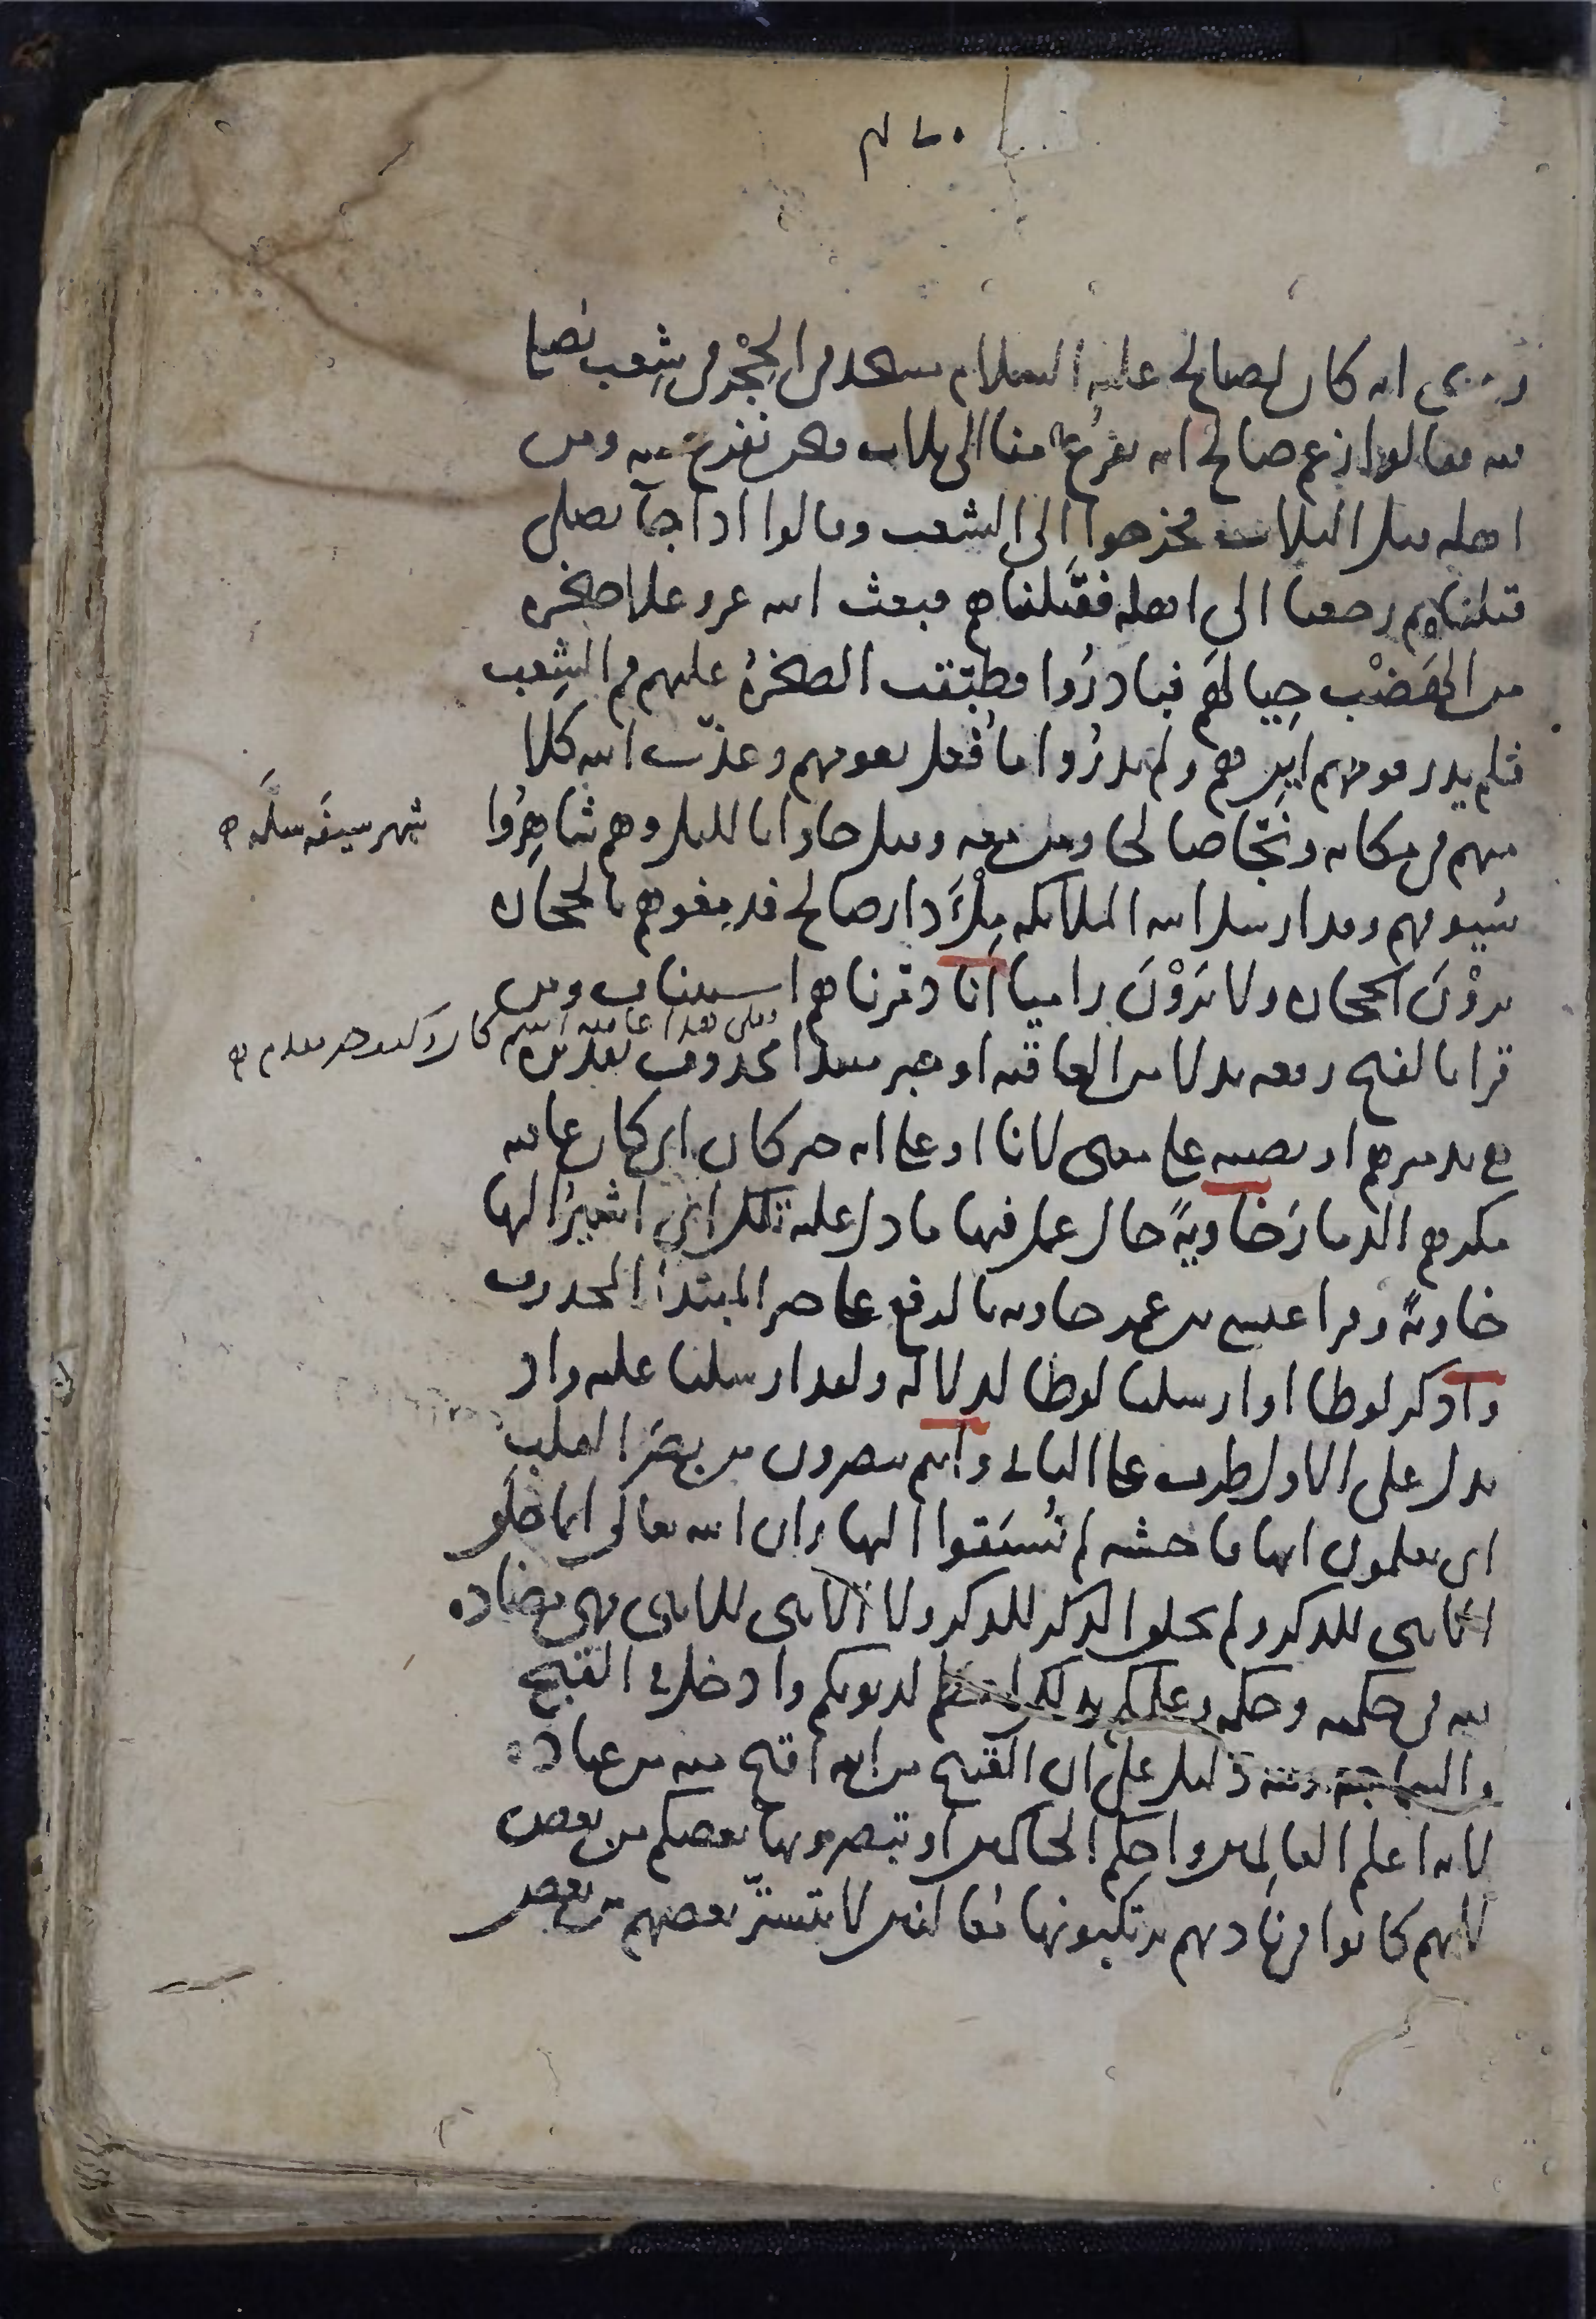 روى انه كان لصالح عليه السلام مسجد في الحِجْر في شِعب يصلي
فيه فقالوا زعم صالح انه يفرُغ منا الى ثلاث فنحن نفرغ منه ومن
اهله قبل الثلاث فخرجوا الى الشعب وقالوا اذا جآ يصلى
قتلناه ثم رجعنا الى اهله فقتلناهم فبعث الله عز وعلا صخرة
من الهَضْب حِيالهم فبادرُوا فطبّقت الصخرةُ عليهم فم الشِعب
فلم يدر قومهم اين هم ولم يدرُوا ما فُعل بقومهم وعذّب الله كُلا
منهم في مكانه ونجّا صالحا ومن معه وقيل جاوا بالليل وهم شاهِرُوا
شهر سيفَه سلَّه
سُيوفهم وقد ارسل الله الملائكه مِلْءَ دار صالح فدمغوهم بالحجاره
يرَوْنَ الحجاره ولا يَرَوْنَ راميا انا دمّرناهم استيناف ومن
قرا بالفتح رفعه بدلا من العاقبه او خبر مبتدا محذوف تقديره
وعلى هذا عاقبه اسم كان وكيف خبر مقدم
هي تدميرهم او نصبه على معنى لانا او على انه خبر كان اى كان عاقبه
مكرهم الدمارَ خاويةً حال عمل فيها ما دل عليه تلك اى اشيرُ اليها
خاويةً وقرا عيسى بن عمر خاويه بالرفع على خبر المبتدأ المحذوف
واذكر لوطا او ارسلنا لوطا لدلاله ولقد ارسلنا عليه واذ
بدل على الاول ظرف على الثانى وانتم تبصرون من بصَر القلب
اى تعلمون انها فاحشه لم تُسبَقوا اليها وان الله تعالى انما خلق
الانثى للذكر ولم يخلق الذكر للذكر ولا الانثى للانثى فهى مضاده
لله فى حكمته وحكمه وعلمكم بذلك اعظم لذنوبكم وادخل فى القبح
والسماجة وفيه دليل على ان القبيح من الله اقبح منه من عباده
لانه اعلم العالمين واحكم الحاكمين او تبصرونها بعضكم من بعض
لانهم كانوا فى ناديهم يرتكبونها مُعالنين لا يتستّر بعضهم من بعض